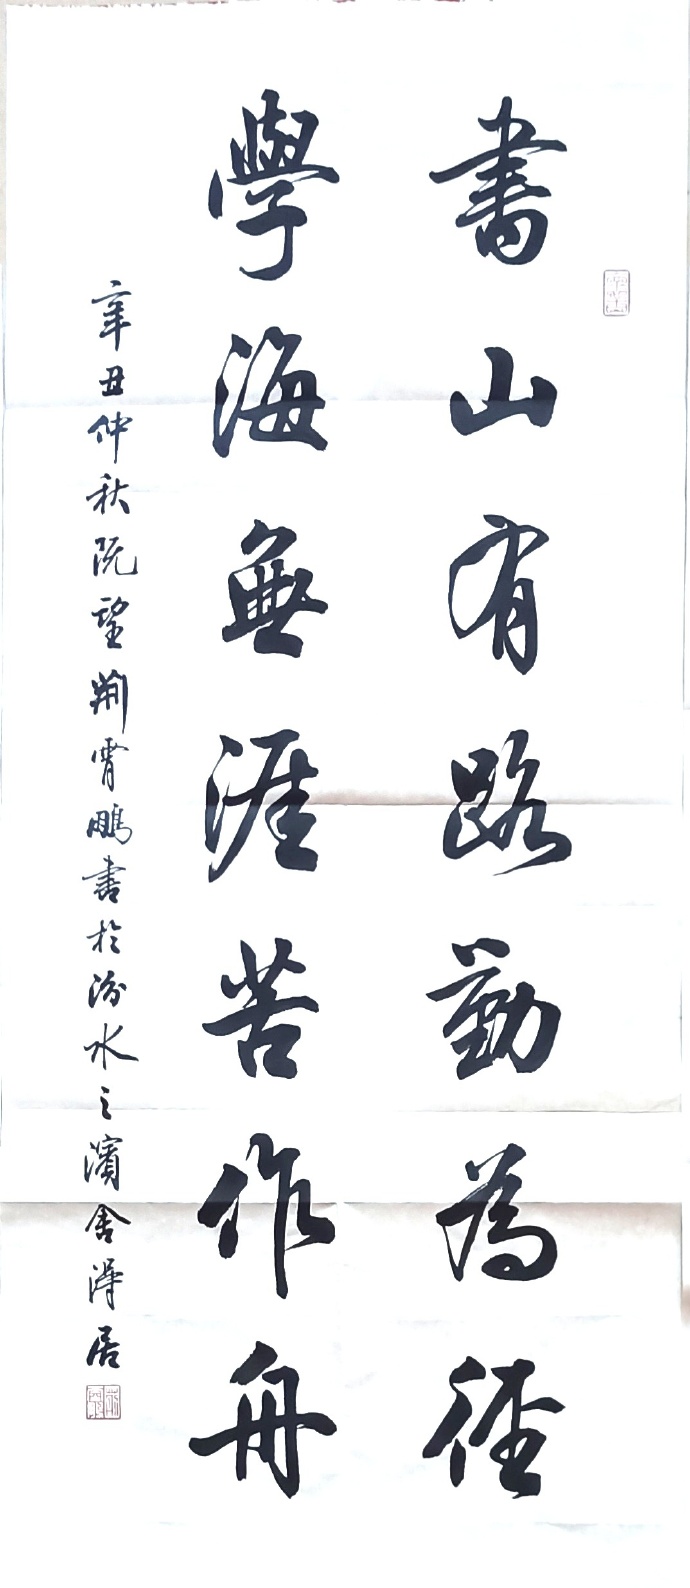 書山有路勤為径
學海無涯苦作舟
辛丑仲秋阮望荆霄鵬書於汾水之濱舍得居